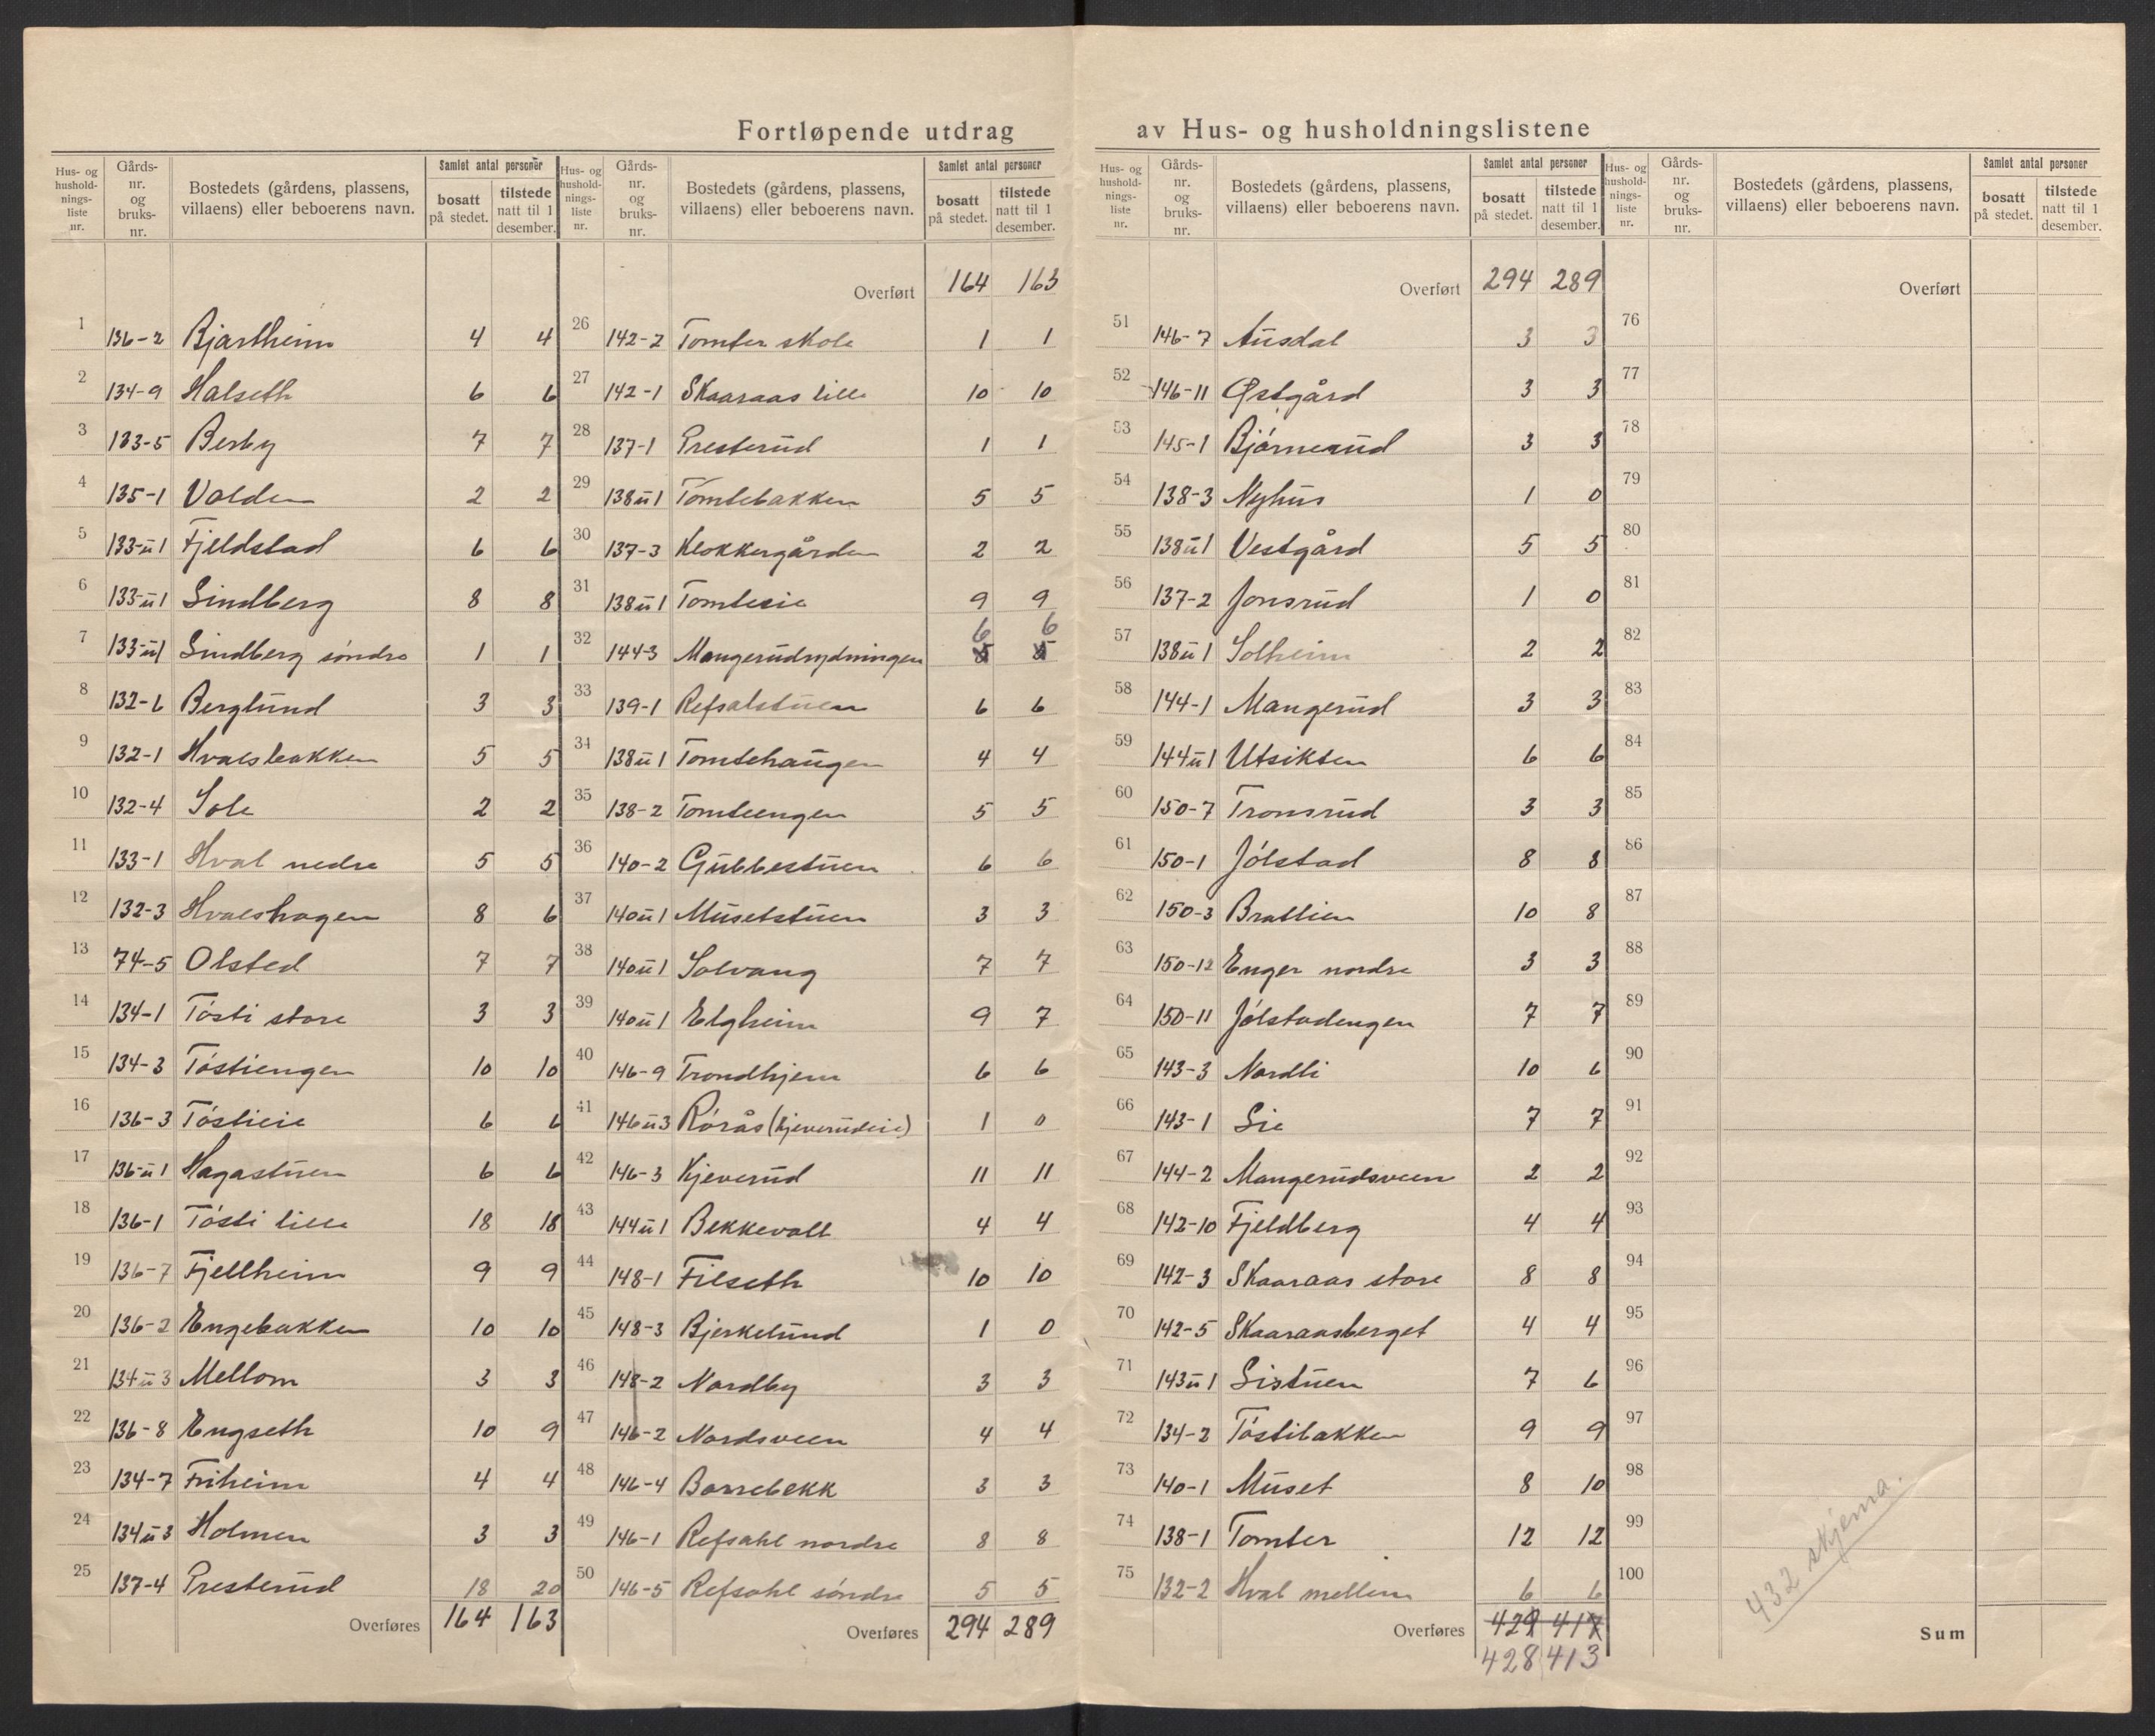 Fortløpende utdrag av Hus- og husholdningslistene
Hus- og husholdningsliste nr. | Gårds-nr. og bruks-nr. | Bostedets (gårdens, plassens, villaens) eller beboerens navn. | Samlet antal personer | bosatt på stedet. | tilstede natt til 1 desember.
1 136-2 Bjartheim 4 4
2 134-9 Halseth 6 6
3 133-5 Berby 7 7
4 135-1 Volden 2 2
5 133-u1 Fjeldstad 6 6
6 133-u1 Lindberg 8 8
7 133-u1 Lindberg søndre 1 1
8 132-6 Berglund 3 3
9 132-1 Hvalsbakken 5 5
10 132-4 Sole 2 2
11 133-1 Hval nedre 5 5
12 132-3 Hvalshagen 8 6
13 74-5 Olsted 7 7
14 134-1 Tøsti store 3 3
15 134-3 Tøstiengen 10 10
16 136-3 Tøstieie 6 6
17 136-u1 Hagastuen 6 6
18 136-1 Tøsti lille 18 18
19 136-7 Fjellheim 9 9
20 136-2 Engebakken 10 10
21 134u3 Mellom 3 3
22 136-8 Engseth 10 9
23 134-7 Friheim 4 4
24 134u3 Holmen 3 3
25 137-4 Presterud 18 20
Overføres 164 163
Hus- og husholdningsliste nr. | Gårds-nr. og bruks-nr. | Bostedets (gårdens, plassens, villaens) eller beboerens navn. | Samlet antal personer | bosatt på stedet. | tilstede natt til 1 desember.
Overført 164 163
26 142-2 Tomter skole 1 1
27 142-1 Skaaraas lille 10 10
28 137-1 Presterud 1 1
29 138u1 Tomtebakken 5 5
30 137-3 Klokkergården 2 2
31 138u1 Tomteeie 9 9
32 144-3 Mangerudrydningen 6 6
33 139-1 Refsalstuen 6 6
34 138u1 Tomtehaugen 4 4
35 138-2 Tomteengen 5 5
36 140-2 Gubbestuen 6 6
37 140u1 Musetstuen 3 3
38 140u1 Solvang 7 7
39 140u1 Elgheim 9 7
40 146-9 Trondhjem 6 6
41 146u3 Rørås (Kjeverudeie) 1 0
42 146-3 Kjeverud 11 11
43 144u1 Bekkevoll 4 4
44 148-1 Filseth 10 10
45 148-3 Bjerkelund 1 0
46 148-2 Nordby 3 3
47 146-2 Nordsveen 4 4
48 146-4 Borrebekk 3 3
49 146-1 Refsahl nordre 8 8
50 146-5 Refsahl søndre 5 5
Overføres 294 289
Hus- og husholdningsliste nr. | Gårds-nr. og bruks-nr. | Bostedets (gårdens, plassens, villaens) eller beboerens navn. | Samlet antal personer | bosatt på stedet. | tilstede natt til 1 desember.
Overført 294 289
51 146-7 Ausdal 3 3
52 146-11 Østgård 3 3
53 145-1 Bjørnerud 3 3
54 138-3 Nyhus 1 0
55 138u1 Vestgård 5 5
56 137-2 Jonsrud 1 0
57 138u1 Solheim 2 2
58 144-1 Mangerud 3 3
59 144u1 Utsikten 6 6
60 150-7 Tronsrud 3 3
61 150-1 Jølstad 8 8
62 150-3 Bratlien 10 8
63 150-12 Enger nordre 3 3
64 150-11 Jølstadengen 7 7
65 143-3 Nordli 10 6
66 143-1 Lie 7 7
67 144-2 Mangerudsveen 2 2
68 142-10 Fjeldberg 4 4
69 142-3 Skaaraas store 8 8
70 142-5 Skaaraasberget 4 4
71 143u1 Listuen 7 6
72 134-2 Tøstibakken 9 9
73 140-1 Muset 8 10
74 138-1 Tomter 12 12
75 132-2 Hval mellem 6 6
Overføres 429 417
428 413
Hus- og husholdningsliste nr. | Gårds-nr. og bruks-nr. | Bostedets (gårdens, plassens, villaens) eller beboerens navn. | Samlet antal personer | bosatt på stedet. | tilstede natt til 1 desember.
Overført
76
77
78
79
80
81
82
83
84
85
86
87
88
89
90
91
92
93
94
95
96
97
98
99
100
432 skjema.
Sum